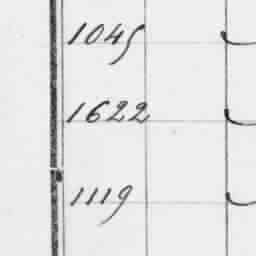 1045
1622
1119